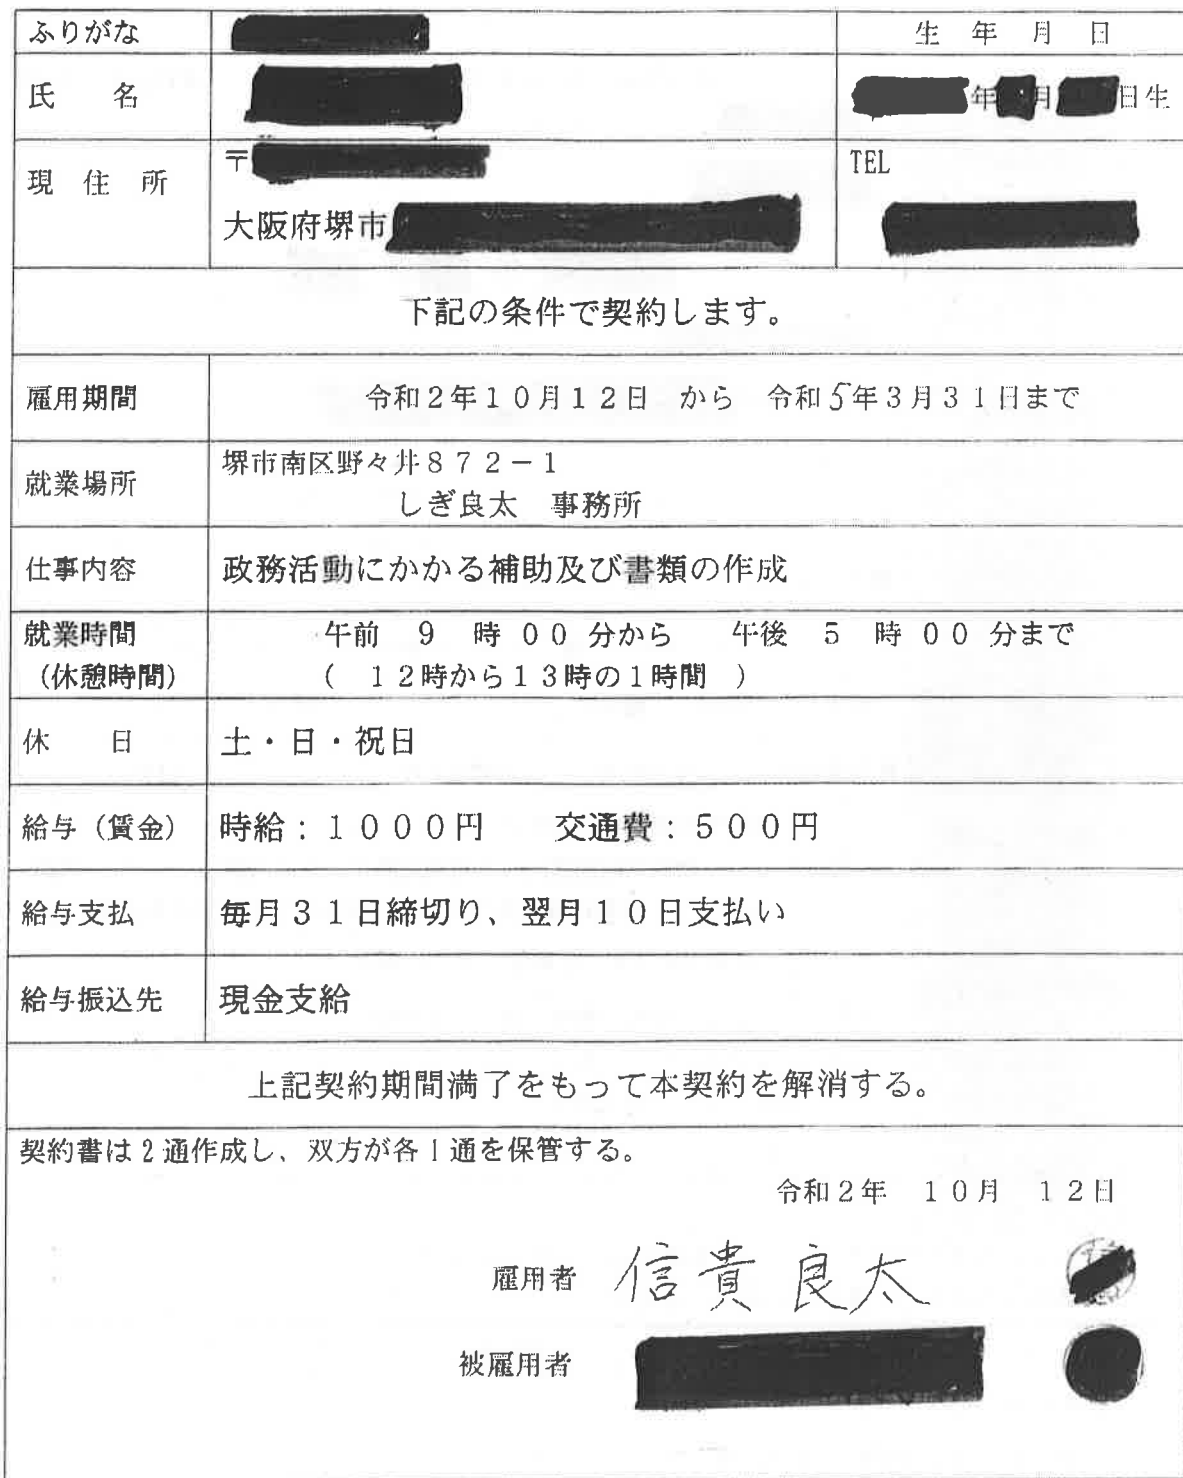 ふりがな
生 年 月 日
氏 名
年 月 日生
現 住 所
〒
TEL
大阪府堺市
下記の条件で契約します。
雇用期間
令和2年10月12日 から 令和5年3月31日まで
就業場所
堺市南区野々井872－1
しぎ良太 事務所
仕事内容
政務活動にかかる補助及び書類の作成
就業時間
午前 9 時 00 分から 午後 5 時 00 分まで
（休憩時間）
（ 12時から13時の1時間 ）
休 日
土・日・祝日
給与（賃金）
時給：1000円 交通費：500円
給与支払
毎月31日締切り、翌月10日支払い
給与振込先
現金支給
上記契約期間満了をもって本契約を解消する。
契約書は2通作成し、双方が各1通を保管する。
令和2年 10月 12日
雇用者 信貴良太
被雇用者